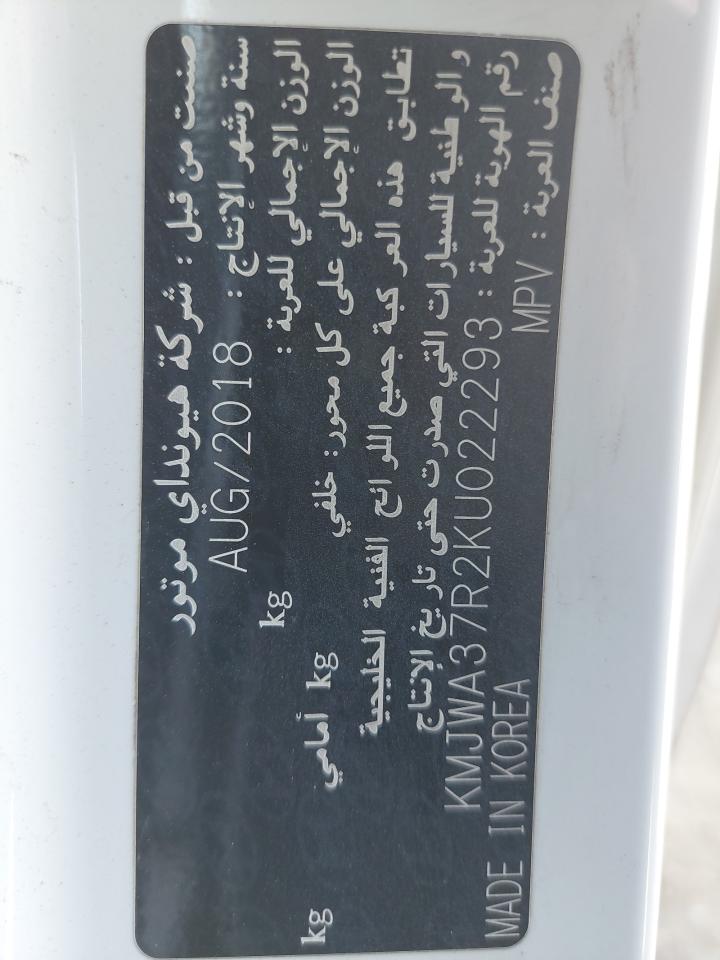 صنعت من قبل : شركة هيونداي موتور
سنة وشهر الإنتاج : AUG/2018
الوزن الإجمالي للعربة : kg
الوزن الإجمالي على كل محور: خلفي kg أمامي kg
تطابق هذه العركبة جميع اللوائح الفنية الخليجية
والوطنية للسيارات التي صدرت حتى تاريخ الإنتاج
رقم الهوية للعربة : KMJWA37R2KU022293
صنف العربة : MPV MADE IN KOREA